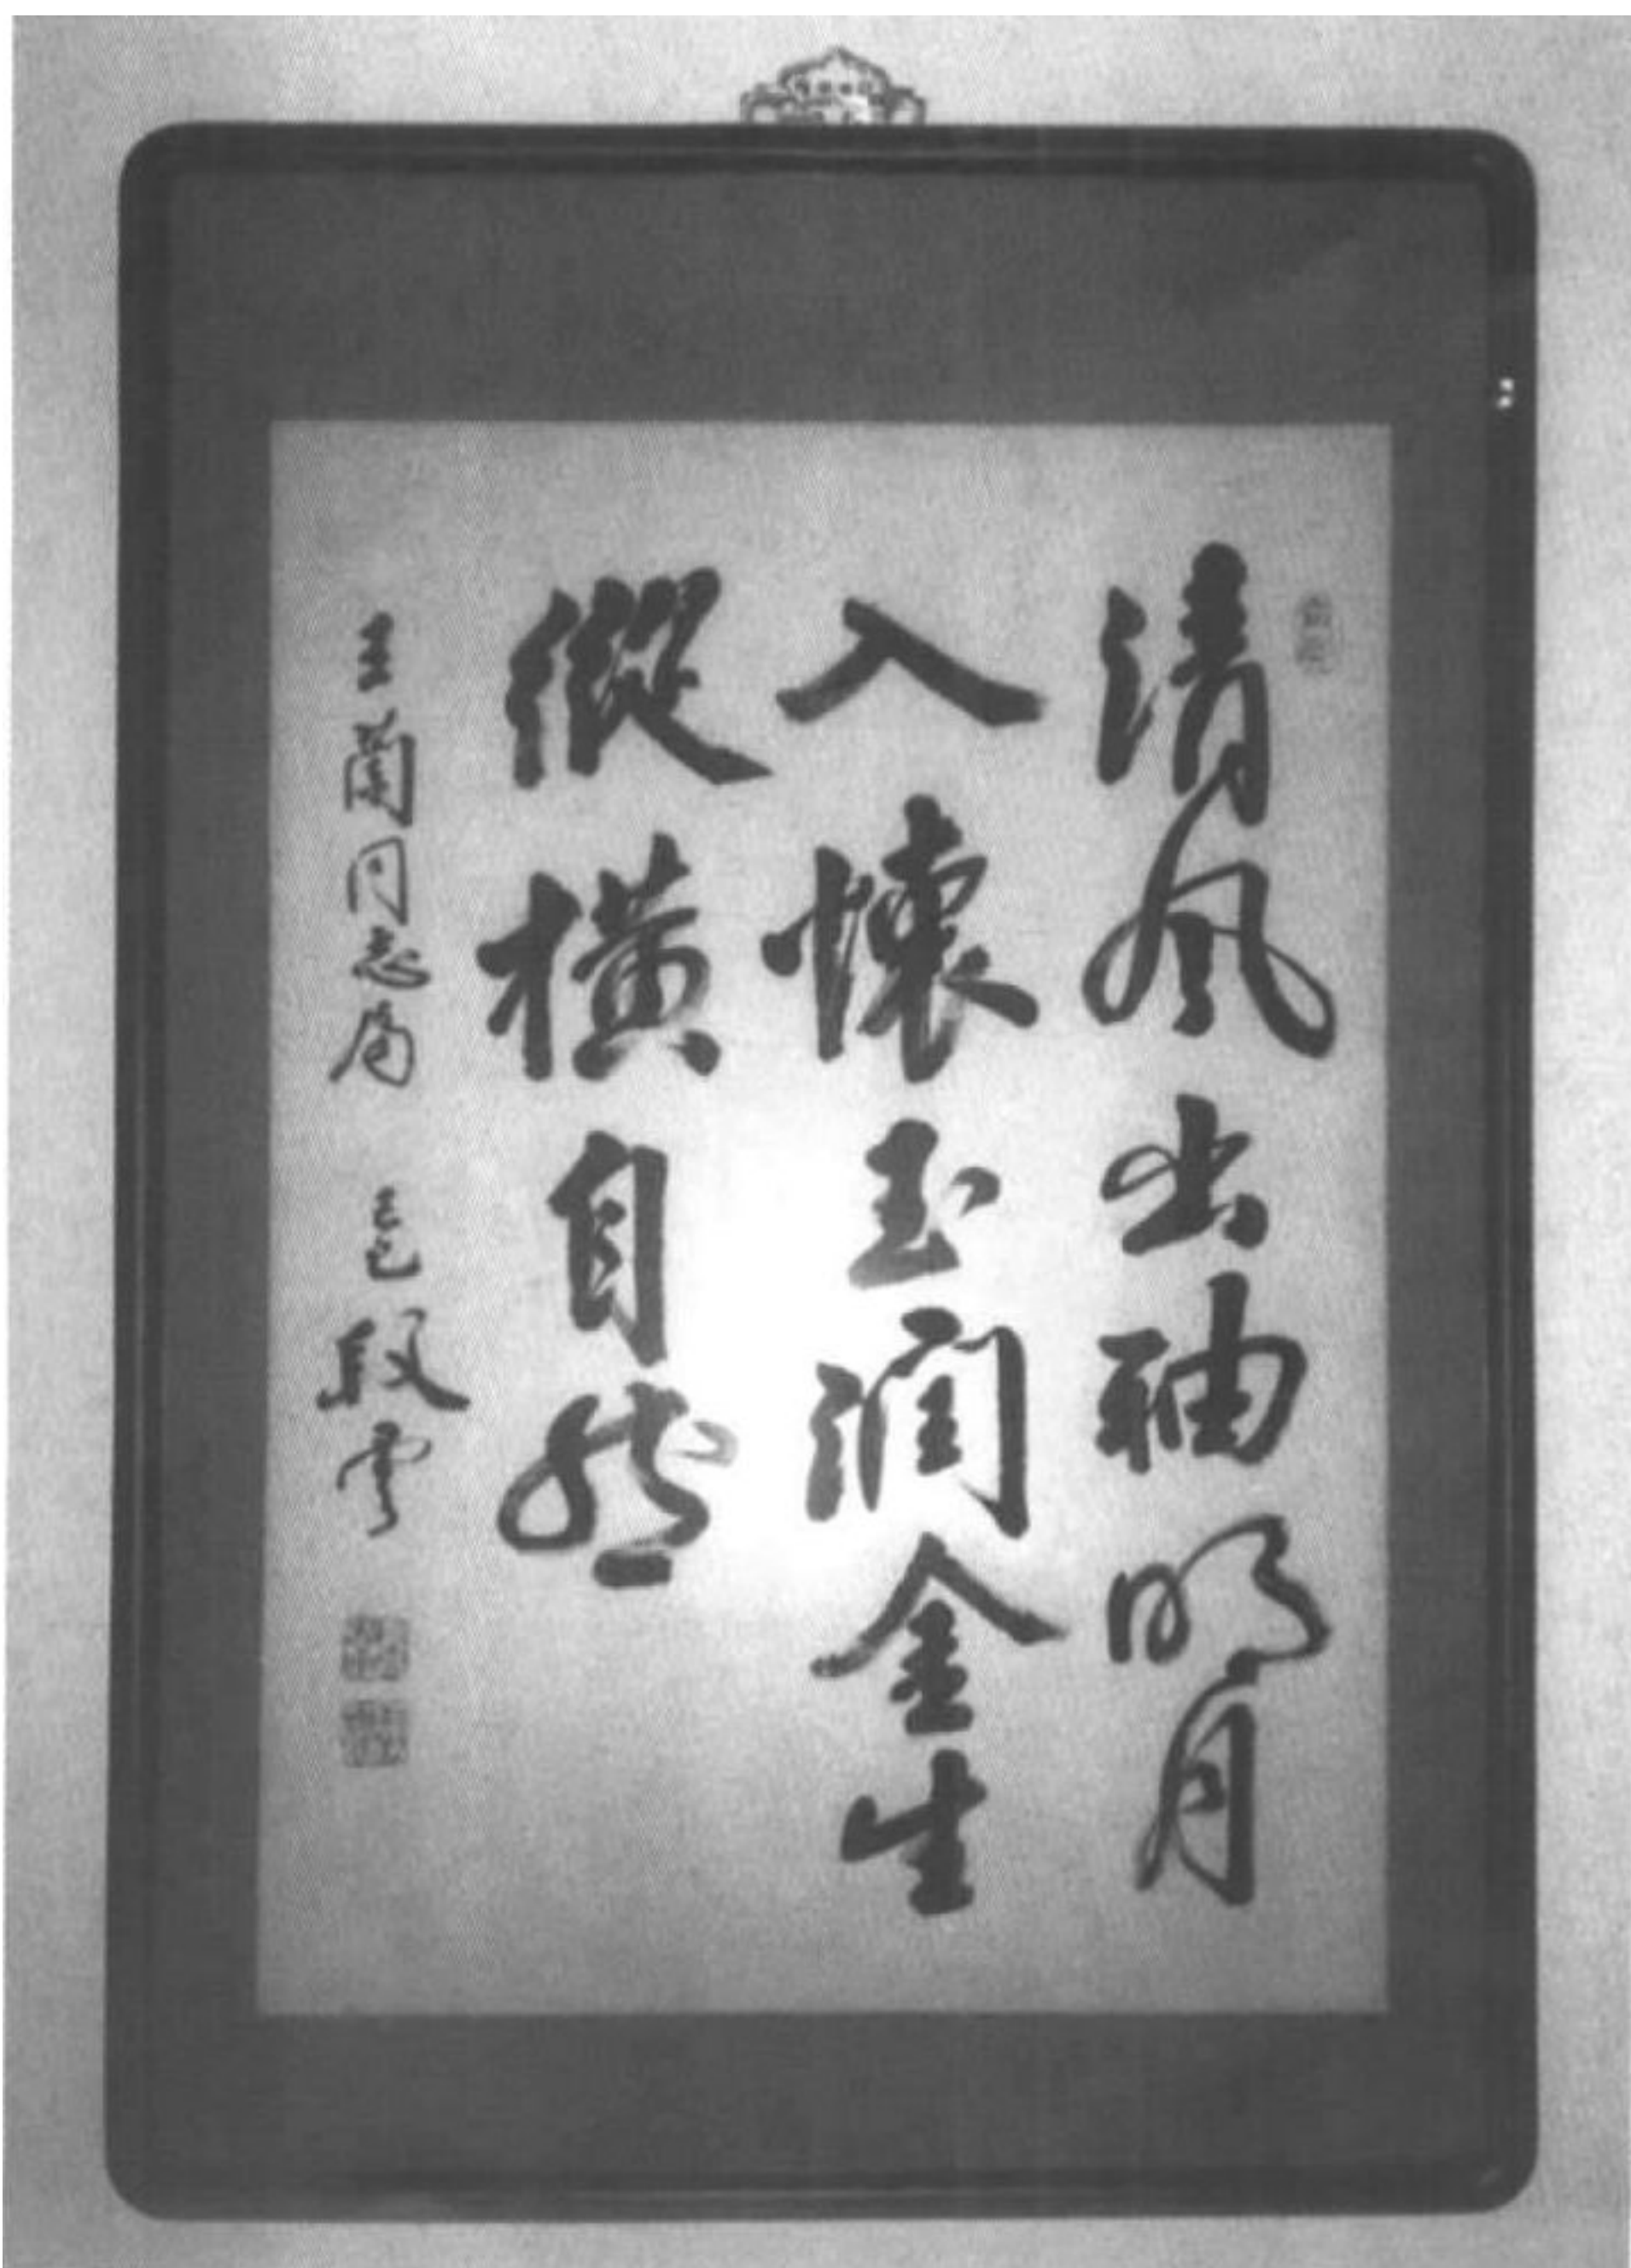 清風出袖明月
入懷玉潤金生
縱橫自然
王蘭同志屬 己巳 段雲